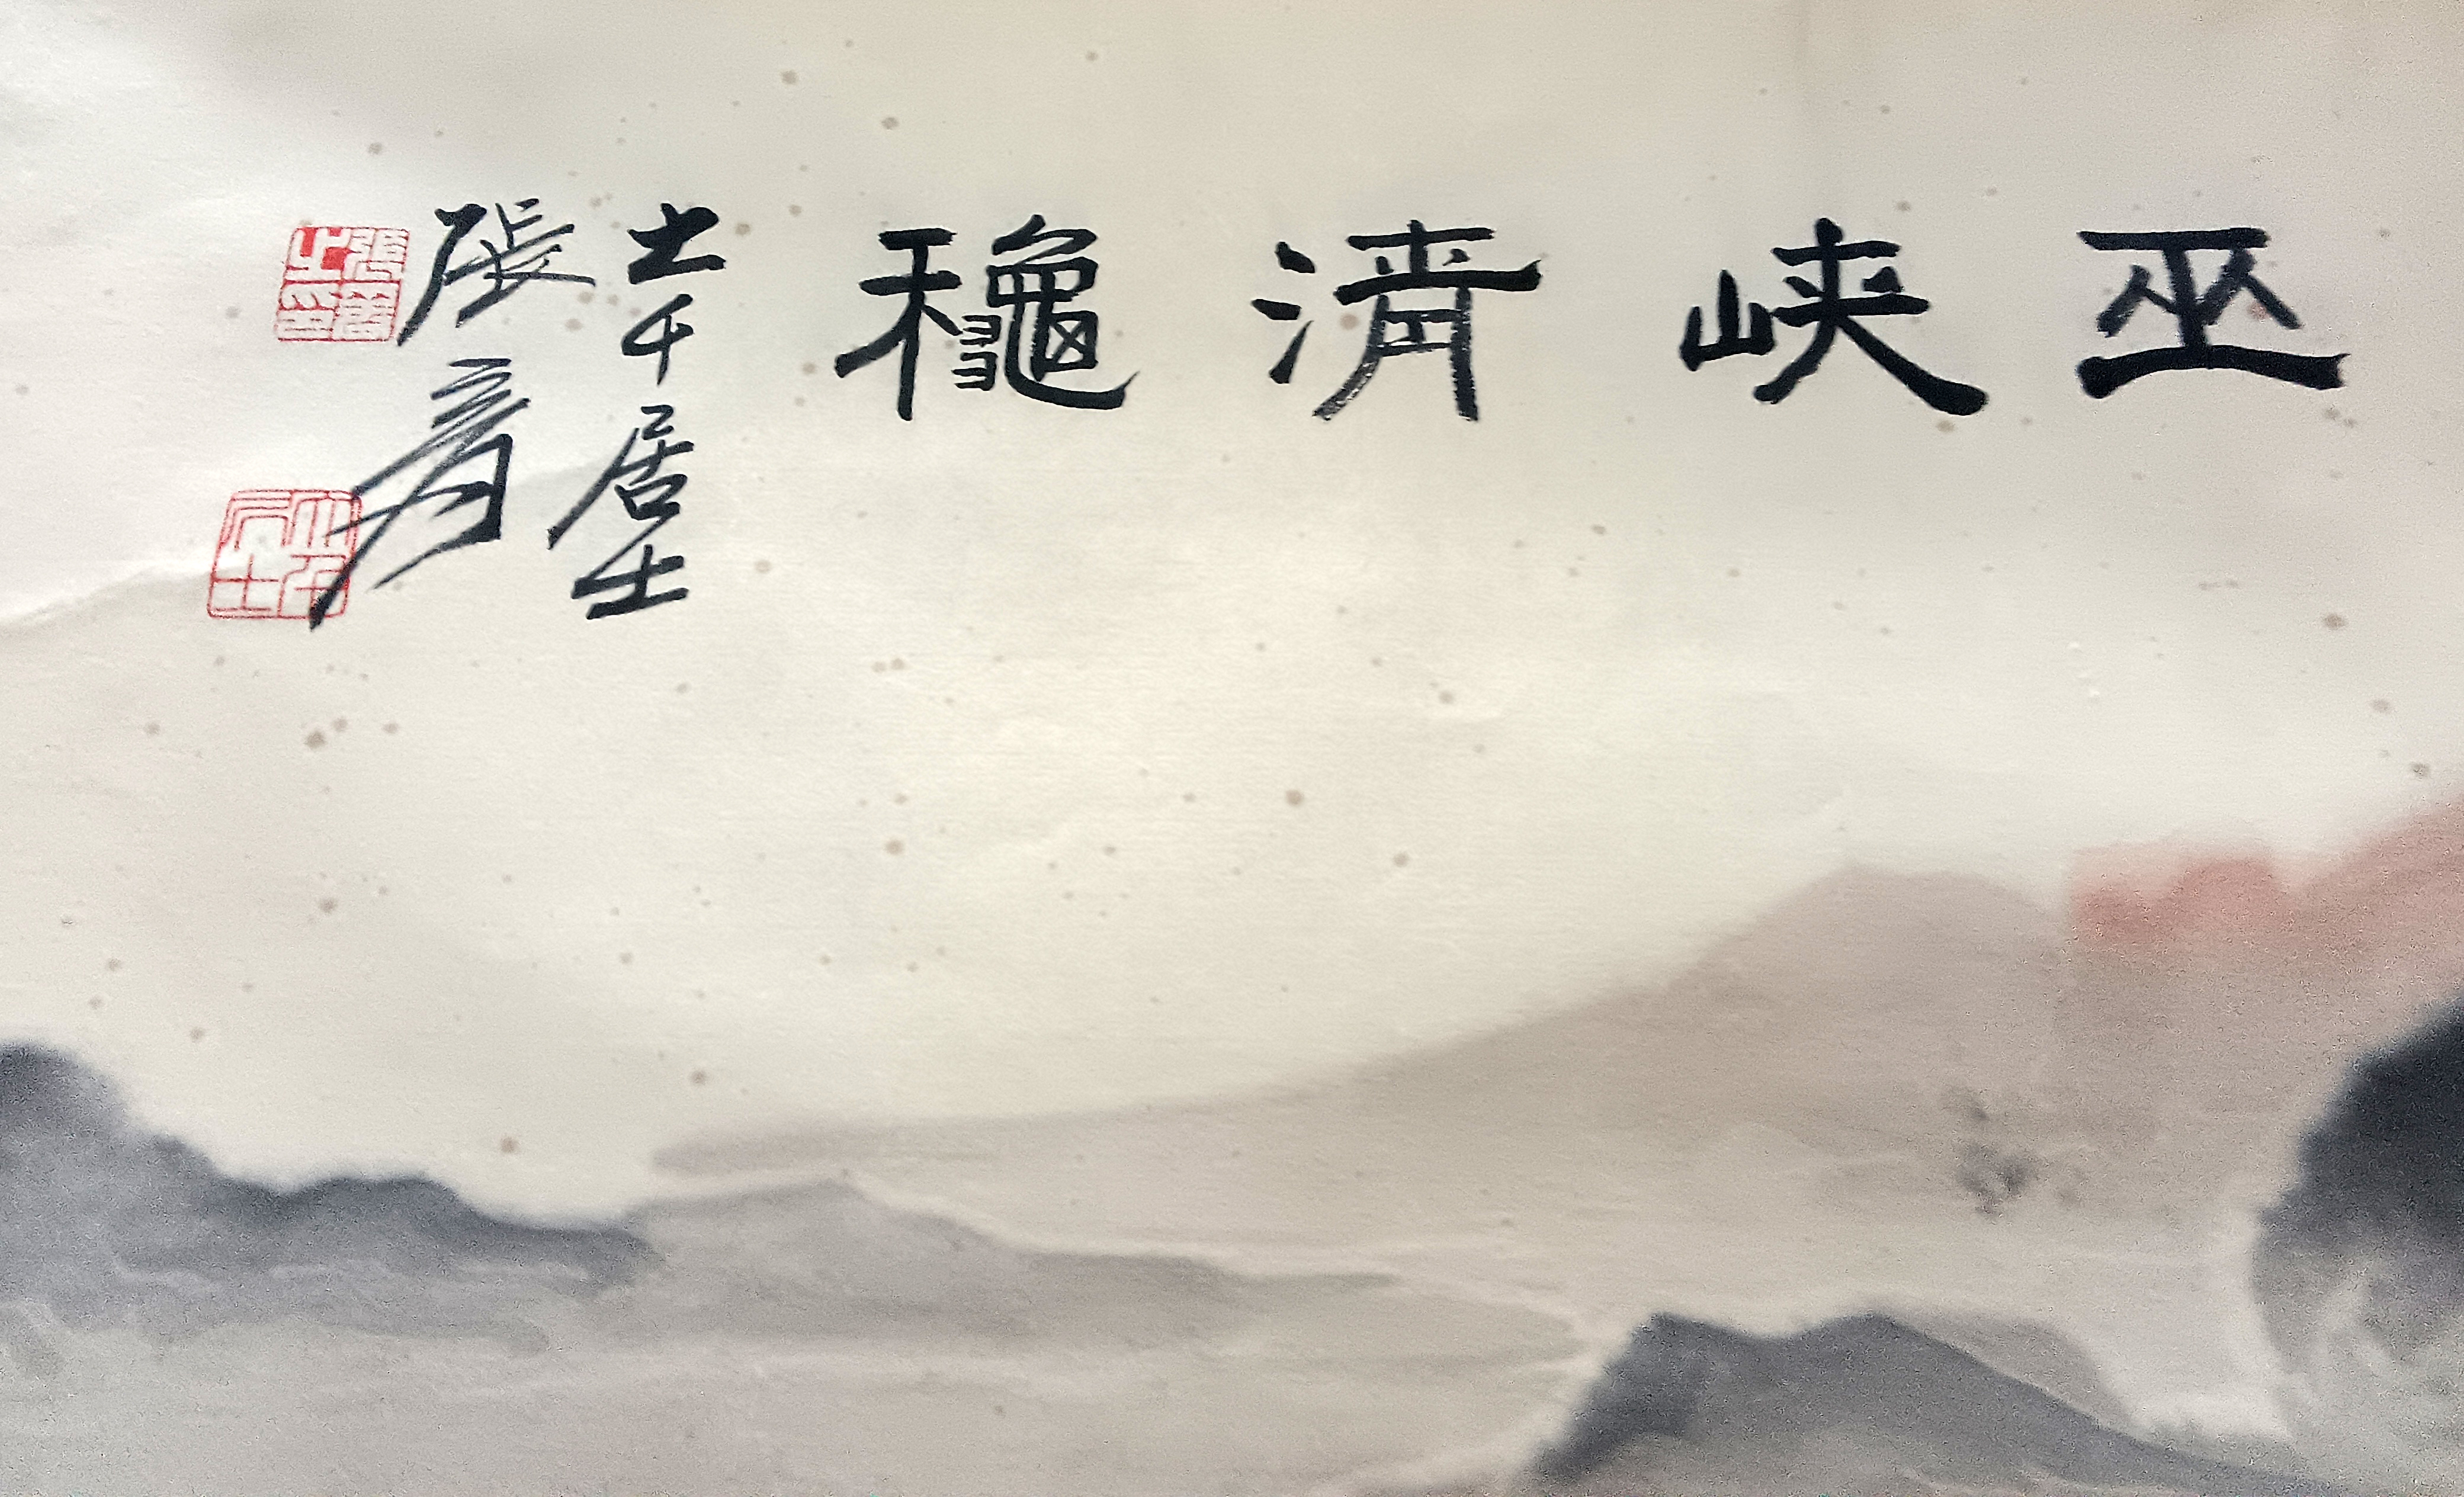 巫峡清龝
大千居士
張爰
張爰之印
大千居士